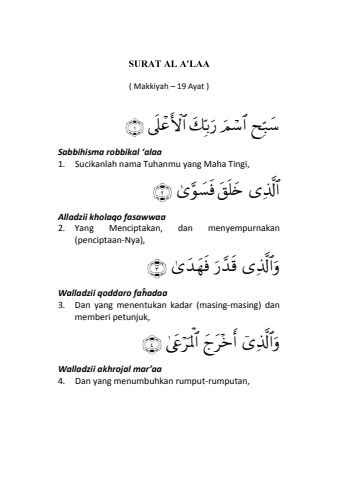 SURAT AL A'LAA
( Makkiyah – 19 Ayat )
سَبِّحِ ٱسْمَ رَبِّكَ ٱلْأَعْلَى ﴿١﴾
Sabbihisma robbikal ‘alaa
1. Sucikanlah nama Tuhanmu yang Maha Tingi,
ٱلَّذِى خَلَقَ فَسَوَّىٰ ﴿٢﴾
Alladzii kholaqo fasawwaa
2. Yang Menciptakan, dan menyempurnakan
(penciptaan-Nya),
وَٱلَّذِى قَدَّرَ فَهَدَىٰ ﴿٣﴾
Walladzii qoddaro faĥadaa
3. Dan yang menentukan kadar (masing-masing) dan
memberi petunjuk,
وَٱلَّذِىٓ أَخْرَجَ ٱلْمَرْعَىٰ ﴿٤﴾
Walladzii akhrojal mar’aa
4. Dan yang menumbuhkan rumput-rumputan,